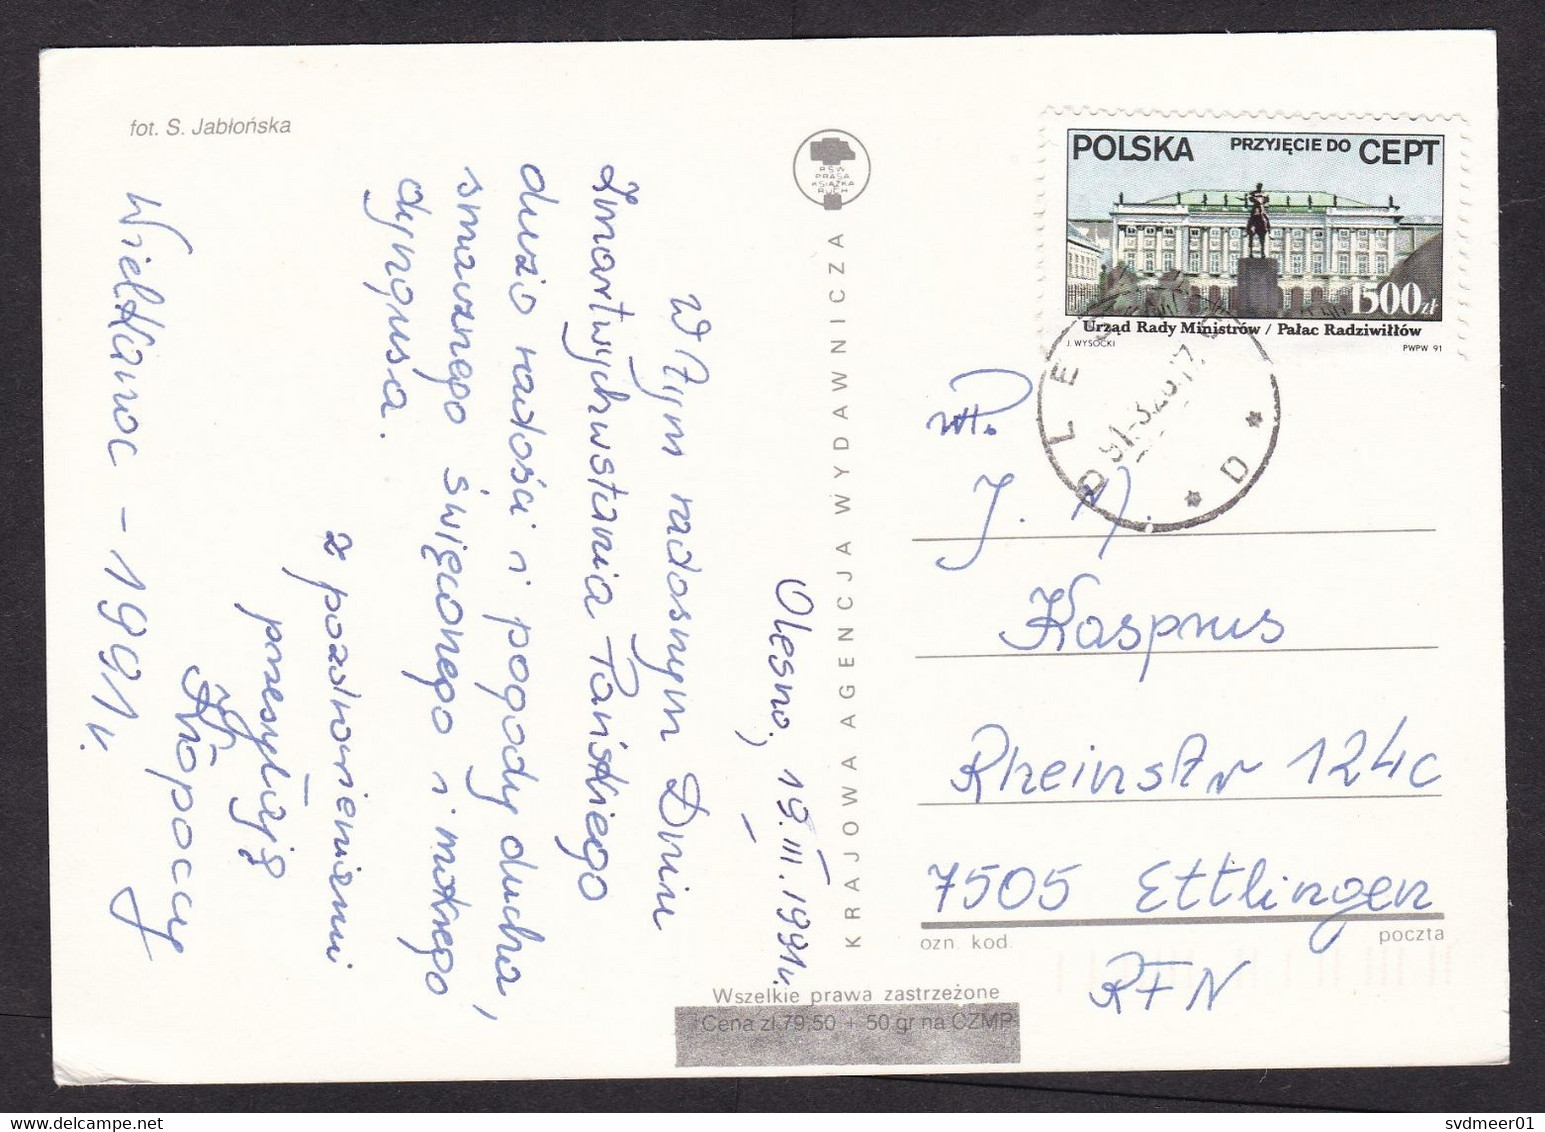 fot. S. Jabłońska
Olesno, 19.III.1991r.
W Tym radosnym Dniu
Zmartwychwstania Pańskiego
dużo radości i pogody ducha,
smacznego święconego i mokrego
dyngusa.
z pozdrowieniami
przesyłają
Kłopocy
Wielkanoc - 1991r.
RSW
PRASA
KSIĄŻKA
RUCH
KRAJOWA AGENCJA WYDAWNICZA
Wszelkie prawa zastrzeżone
Cena zł 79,50 + 50 gr na CZMP
POLSKA PRZYJĘCIE DO CEPT
1500zł
Urząd Rady Ministrów / Pałac Radziwiłłów
J. WYSOCKI PWPW 91
D
J. N.
Kasprus
Rheinstr 124c
7505 Ettlingen
ozn. kod. poczta
RFN
svdmeer01